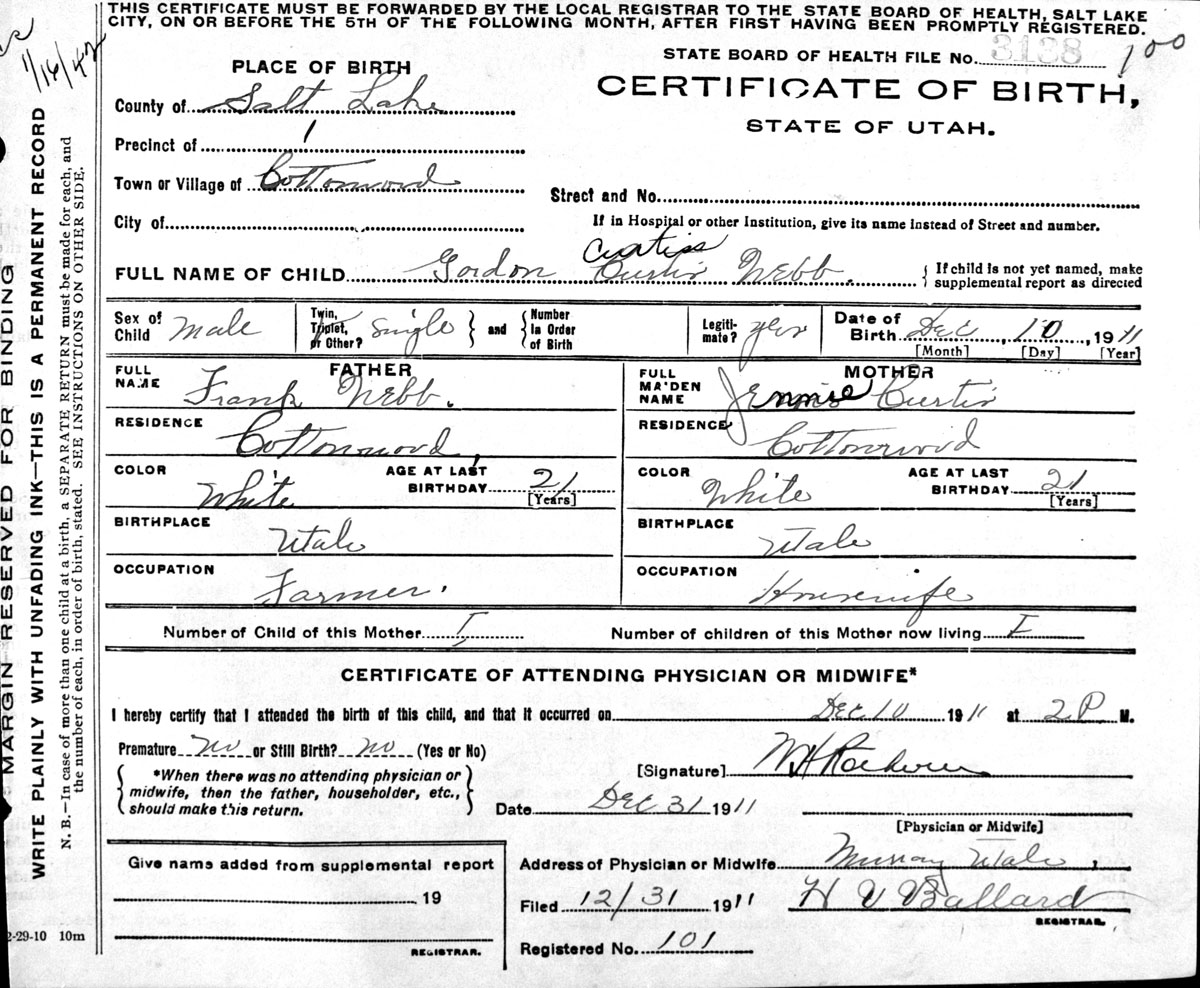 THIS CERTIFICATE MUST BE FORWARDED BY THE LOCAL REGISTRAR TO THE STATE BOARD OF HEALTH, SALT LAKE
CITY, ON OR BEFORE THE 5TH OF THE FOLLOWING MONTH, AFTER FIRST HAVING BEEN PROMPTLY REGISTERED.
1/16/42
STATE BOARD OF HEALTH FILE No. 3138 100
PLACE OF BIRTH
CERTIFICATE OF BIRTH,
STATE OF UTAH.
County of Salt Lake
Precinct of 1
Town or Village of Cottonwood
Street and No.
City of
If in Hospital or other Institution, give its name instead of Street and number.
Curtiss
FULL NAME OF CHILD Gordon Curtis Webb. { If child is not yet named, make
supplemental report as directed
Sex of Child Male
Twin, Triplet, or Other? Single } and { Number in Order of Birth
Legitimate? yes
Date of Birth Dec, 10, 1911
[Month] [Day] [Year]
FATHER
FULL NAME Frank Webb.
MOTHER
FULL MAIDEN NAME Jennie Curtis
RESIDENCE Cottonwood,
RESIDENCE Cottonwood
COLOR White AGE AT LAST BIRTHDAY 21 [Years]
COLOR White AGE AT LAST BIRTHDAY 21 [Years]
BIRTHPLACE Utah
BIRTHPLACE Utah
OCCUPATION Farmer.
OCCUPATION Housewife
Number of Child of this Mother I Number of children of this Mother now living I
CERTIFICATE OF ATTENDING PHYSICIAN OR MIDWIFE*
I hereby certify that I attended the birth of this child, and that it occurred on Dec 10 1911 at 2 P M.
Premature No or Still Birth? No (Yes or No)
{ *When there was no attending physician or
midwife, then the father, householder, etc.,
should make this return. }
[Signature]
Date Dec 31 1911
[Physician or Midwife]
Give name added from supplemental report
19
REGISTRAR.
Address of Physician or Midwife Murray Utah,
Filed 12/31 1911 H V Ballard
REGISTRAR.
Registered No. 101
2-29-10 10m
MARGIN RESERVED FOR BINDING
WRITE PLAINLY WITH UNFADING INK—THIS IS A PERMANENT RECORD
N. B.—In case of more than one child at a birth, a SEPARATE RETURN must be made for each, and
the number of each, in order of birth, stated. SEE INSTRUCTIONS ON OTHER SIDE.